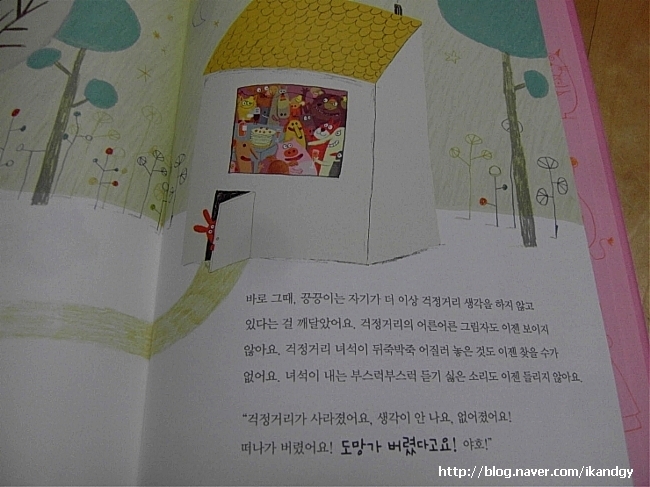 바로 그때, 끙끙이는 자기가 더 이상 걱정거리 생각을 하지 않고
있다는 걸 깨달았어요. 걱정거리의 어른어른 그림자도 이젠 보이지
않아요. 걱정거리 녀석이 뒤죽박죽 어질러 놓은 것도 이젠 찾을 수가
없어요. 녀석이 내는 부스럭부스럭 듣기 싫은 소리도 이젠 들리지 않아요.
“걱정거리가 사라졌어요, 생각이 안 나요, 없어졌어요!
떠나가 버렸어요! 도망가 버렸다고요! 야호!”
http://blog.naver.com/ikandgy